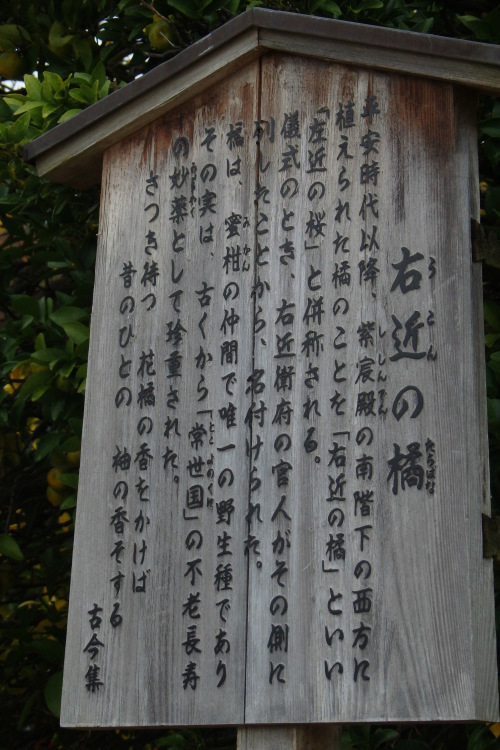 右近の橘
うこん
たちばな
平安時代以降、紫宸殿の南階下の西方に
ししんでん
植えられた橘のことを「右近の橘」といい
「左近の桜」と併称される。
儀式のとき、右近衛府の官人がその側に
列したことから、名付けられた。
橘は、蜜柑の仲間で唯一の野生種であり
みかん
その実は 古くから「常世国」の不老長寿
とこよのくに
の妙薬として珍重された。
さつき待つ 花橘の香をかけば
昔のひとの 袖の香そする
古今集